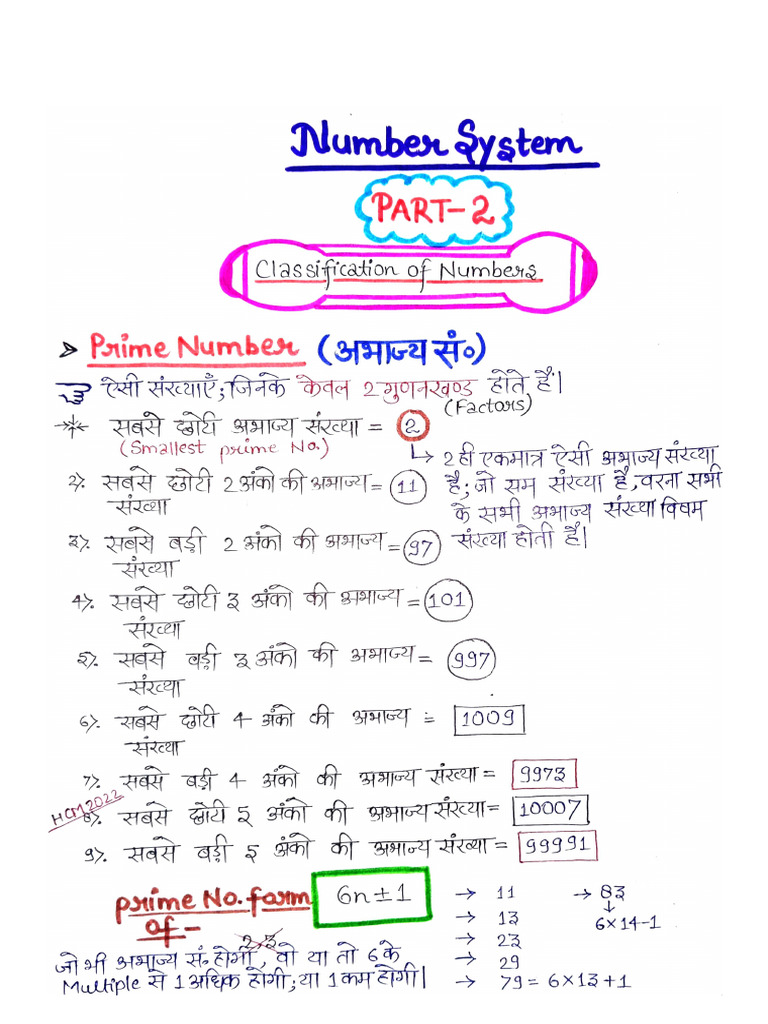 Number System
PART-2
Classification of Numbers
Prime Number (अभाज्य सं०)
ऐसी संख्याएँ; जिनके केवल 2 गुणनखण्ड होते हैं।
(Factors)
सबसे छोटी अभाज्य संख्या = 2
(Smallest prime No.)
↳ 2 ही एकमात्र ऐसी अभाज्य संख्या
है; जो सम संख्या है, वरना सभी
के सभी अभाज्य संख्या विषम
संख्या होती हैं।
2). सबसे छोटी 2 अंको की अभाज्य = 11
संख्या
3). सबसे बड़ी 2 अंको की अभाज्य = 97
संख्या
4). सबसे छोटी 3 अंको की अभाज्य = 101
संख्या
5). सबसे बड़ी 3 अंको की अभाज्य = 997
संख्या
6). सबसे छोटी 4 अंको की अभाज्य = 1009
संख्या
7). सबसे बड़ी 4 अंको की अभाज्य संख्या = 9973
HCM 2022
8). सबसे छोटी 5 अंको की अभाज्य संख्या = 10007
9). सबसे बड़ी 5 अंको की अभाज्य संख्या = 99991
prime No. form
of -
6n ± 1
→ 11
→ 13
→ 23
→ 29
→ 79 = 6×13+1
→ 83
↓
6×14-1
2, 3
जो भी अभाज्य सं. होगी, वो या तो 6 के
Multiple से 1 अधिक होगी; या 1 कम होगी।